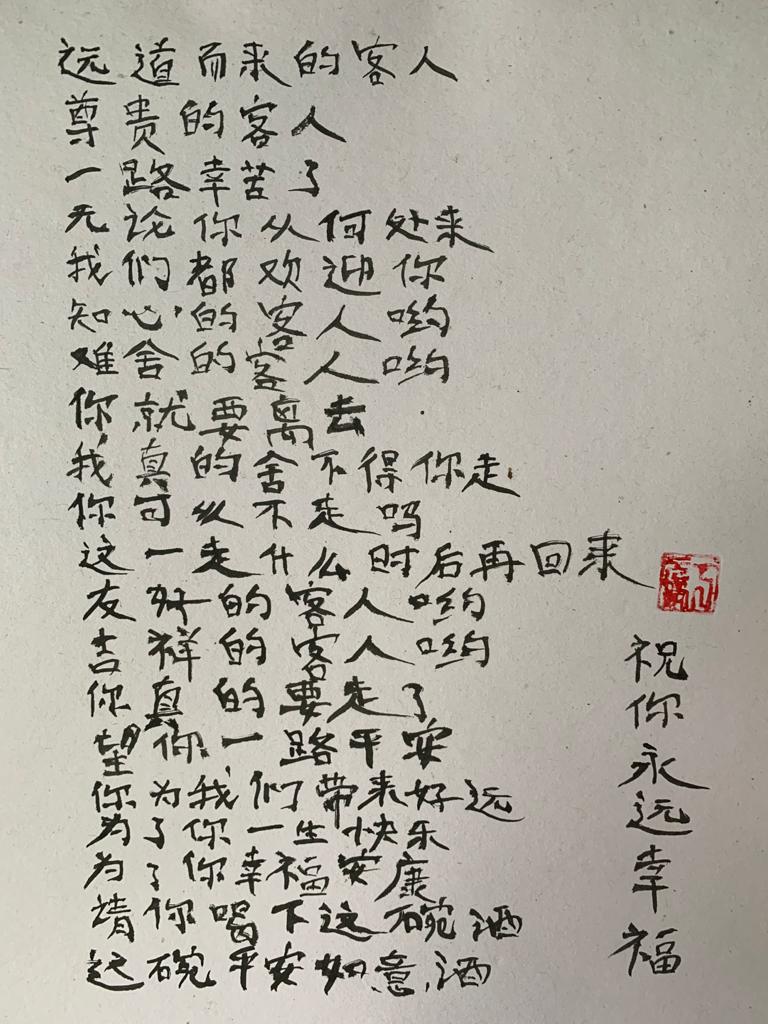 远道而来的客人
尊贵的客人
一路幸苦了
无论你从何处来
我们都欢迎你
知心的客人哟
难舍的客人哟
你就要离去
我真的舍不得你走
你可以不走吗
这一走什么时后再回来
友好的客人哟
吉祥的客人哟
你真的要走了
望你一路平安
你为我们带来好远
为了你一生快乐
为了你幸福安康
请你喝下这碗酒
这碗平安如意酒
祝你永远幸福